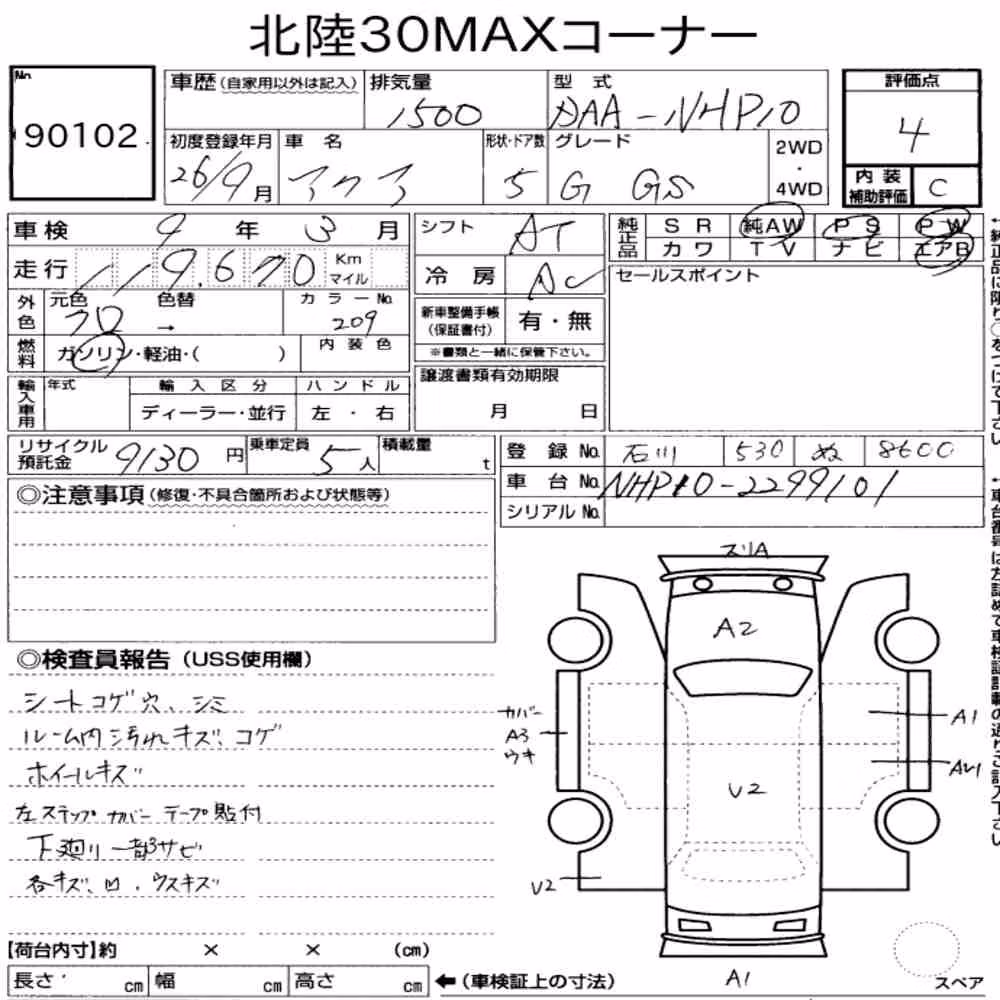 北陸30MAXコーナー
No.
90102
車歴(自家用以外は記入)
排気量
1500
型 式
DAA-NHP10
評価点
4
初度登録年月
26/9月
車 名
アクア
形状・ドア数
5
グレード
G GS
2WD
・
4WD
内 装
補助評価
C
車検 9 年 3 月
走行 119,670 Km
マイル
外色
元色
クロ
色替
→
カ ラ ー No.
209
燃料
ガソリン・軽油・( )
内 装 色
輸入車用
年式
輸 入 区 分
ディーラー・並行
ハ ン ド ル
左 ・ 右
シフト
AT
冷 房
AC
新車整備手帳
(保証書付)
有・無
※書類と一緒に保管下さい。
譲渡書類有効期限
月 日
純正品
S R 純AW P S P W
カ ワ T V ナ ビ エアB
セールスポイント
リサイクル
預託金
9130 円
乗車定員
5 人
積載量
t
登 録 No. 石川 530 ぬ 8600
車 台 No. NHP10-2299101
シリアル No.
◎注意事項(修復・不具合箇所および状態等)
◎検査員報告(USS使用欄)
シートコゲ穴、シミ
ルーム内汚れキズ、コゲ
ホイールキズ
左ステップカバーテープ貼付
下廻り一部サビ
各キズ、凹、ウスキズ
スリA
A2
カバー
A3
ウキ
A1
AU1
U2
U2
A1
スペア
【荷台内寸】約 × × (cm)
長さ cm 幅 cm 高さ cm
←(車検証上の寸法)